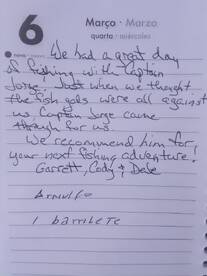 6
Março · Marzo
quarta · miércoles
We had a great day
of fishing with Captain
Jorge. Just when we thought
the fish gods were all against
us Captain Jorge came
through for us.
We recommend him for
your next fishing adventure.
Garrett, Cody & Dale
1 barrilete